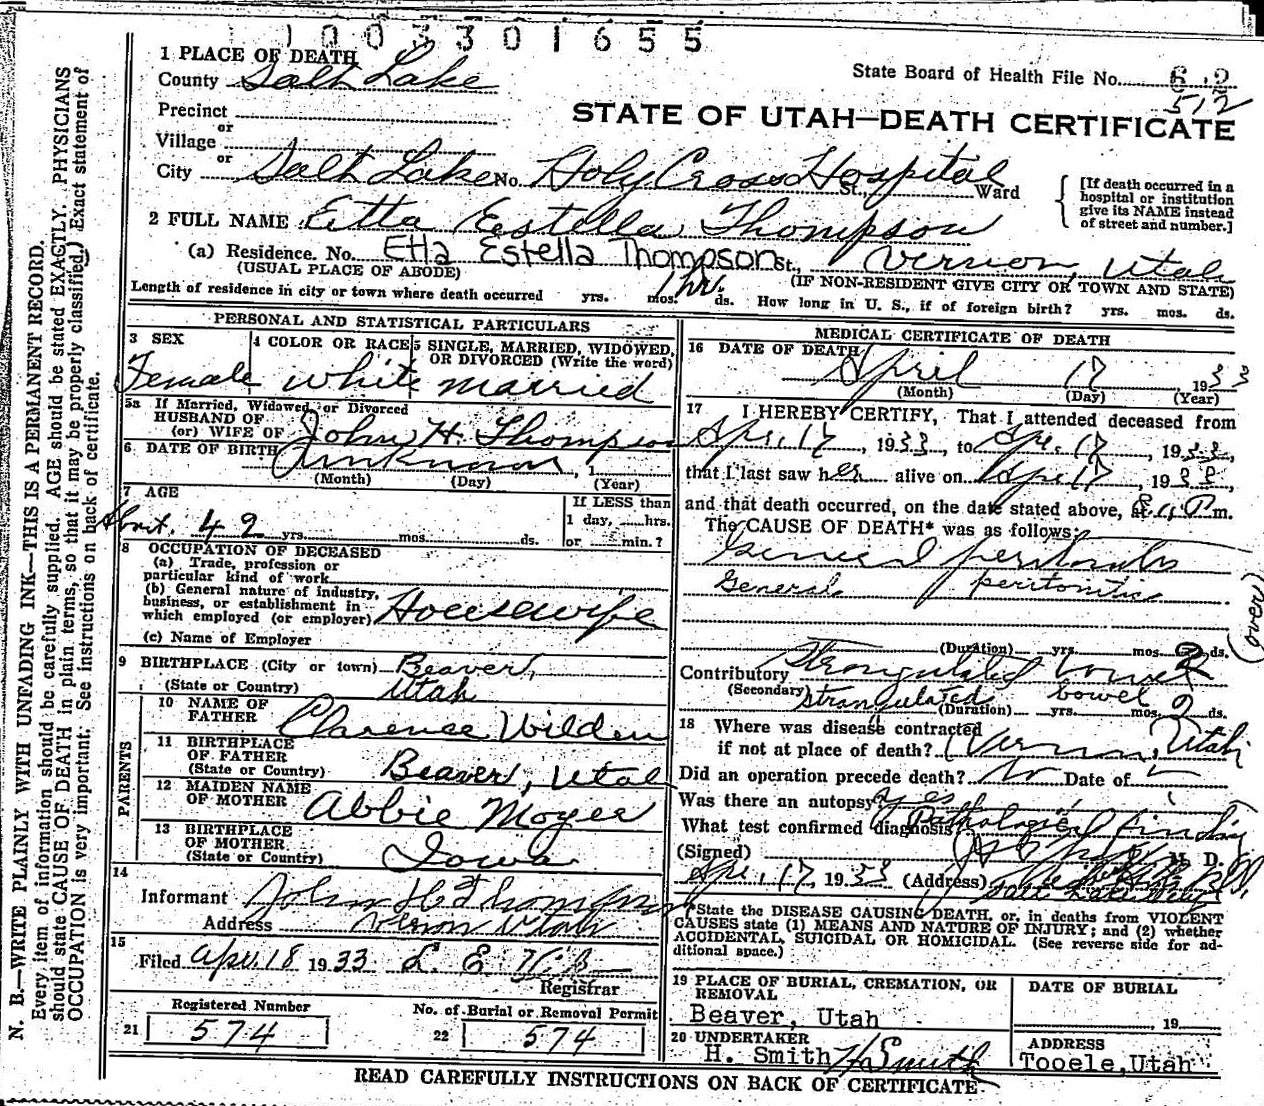 1003301655
1 PLACE OF DEATH
County Salt Lake
State Board of Health File No. 62
512
Precinct
or
Village
or
City Salt Lake No. Holy Cross Hospital St., Ward
STATE OF UTAH—DEATH CERTIFICATE
[If death occurred in a
hospital or institution
give its NAME instead
of street and number.]
2 FULL NAME Etta Estella Thompson
(a) Residence. No. Etta Estella Thompson St., Vernon, Utah
(USUAL PLACE OF ABODE) (IF NON-RESIDENT GIVE CITY OR TOWN AND STATE)
Length of residence in city or town where death occurred yrs. mos. 1 hr. ds. How long in U. S., if of foreign birth? yrs. mos. ds.
PERSONAL AND STATISTICAL PARTICULARS
3 SEX
Female
4 COLOR OR RACE
white
5 SINGLE, MARRIED, WIDOWED,
OR DIVORCED (Write the word)
married
5a If Married, Widowed, or Divorced
HUSBAND OF
(or) WIFE OF John H. Thompson
6 DATE OF BIRTH Unknown, 1
(Month) (Day) (Year)
7 AGE
About 42 yrs. mos. ds.
If LESS than
1 day, hrs.
or min.?
8 OCCUPATION OF DECEASED
(a) Trade, profession or
particular kind of work
(b) General nature of industry,
business, or establishment in
which employed (or employer) Housewife
(c) Name of Employer
9 BIRTHPLACE (City or town) Beaver,
(State or Country) Utah
PARENTS
10 NAME OF
FATHER Clarence Wilden
11 BIRTHPLACE
OF FATHER
(State or Country) Beaver, Utah
12 MAIDEN NAME
OF MOTHER Abbie Moyer
13 BIRTHPLACE
OF MOTHER
(State or Country) Iowa
14
Informant John H. Thompson
Address Vernon Utah
15
Filed Apr. 18 1933
Registrar
Registered Number
21 574
No. of Burial or Removal Permit
22 574
MEDICAL CERTIFICATE OF DEATH
16 DATE OF DEATH
April 17, 1933
(Month) (Day) (Year)
17 I HEREBY CERTIFY, That I attended deceased from
Apr. 17, 1933, to Apr. 17, 1933,
that I last saw her alive on Apr 17, 1933
and that death occurred, on the date stated above, at P m.
The CAUSE OF DEATH* was as follows:
General peritonitis
General peritonitis
(over)
(Duration) yrs. mos. 2 ds.
Contributory Strangulated bowel
(Secondary) Strangulated bowel
(Duration) yrs. mos. 2 ds.
18 Where was disease contracted
if not at place of death? Vernon, Utah
Did an operation precede death? No Date of
Was there an autopsy? yes
What test confirmed diagnosis? Pathological finding
(Signed) M. D.
Apr. 17, 1933 (Address)
*State the DISEASE CAUSING DEATH, or, in deaths from VIOLENT
CAUSES state (1) MEANS AND NATURE OF INJURY; and (2) whether
ACCIDENTAL, SUICIDAL OR HOMICIDAL. (See reverse side for ad-
ditional space.)
19 PLACE OF BURIAL, CREMATION, OR
REMOVAL
Beaver, Utah
DATE OF BURIAL
, 19
20 UNDERTAKER
H. Smith H Smith
ADDRESS
Tooele, Utah
READ CAREFULLY INSTRUCTIONS ON BACK OF CERTIFICATE
N. B.—WRITE PLAINLY WITH UNFADING INK—THIS IS A PERMANENT RECORD.
Every item of information should be carefully supplied. AGE should be stated EXACTLY. PHYSICIANS
should state CAUSE OF DEATH in plain terms, so that it may be properly classified. Exact statement of
OCCUPATION is very important. See instructions on back of certificate.